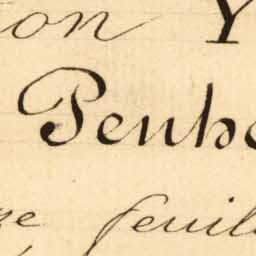 on Y
Penho
ze feuil